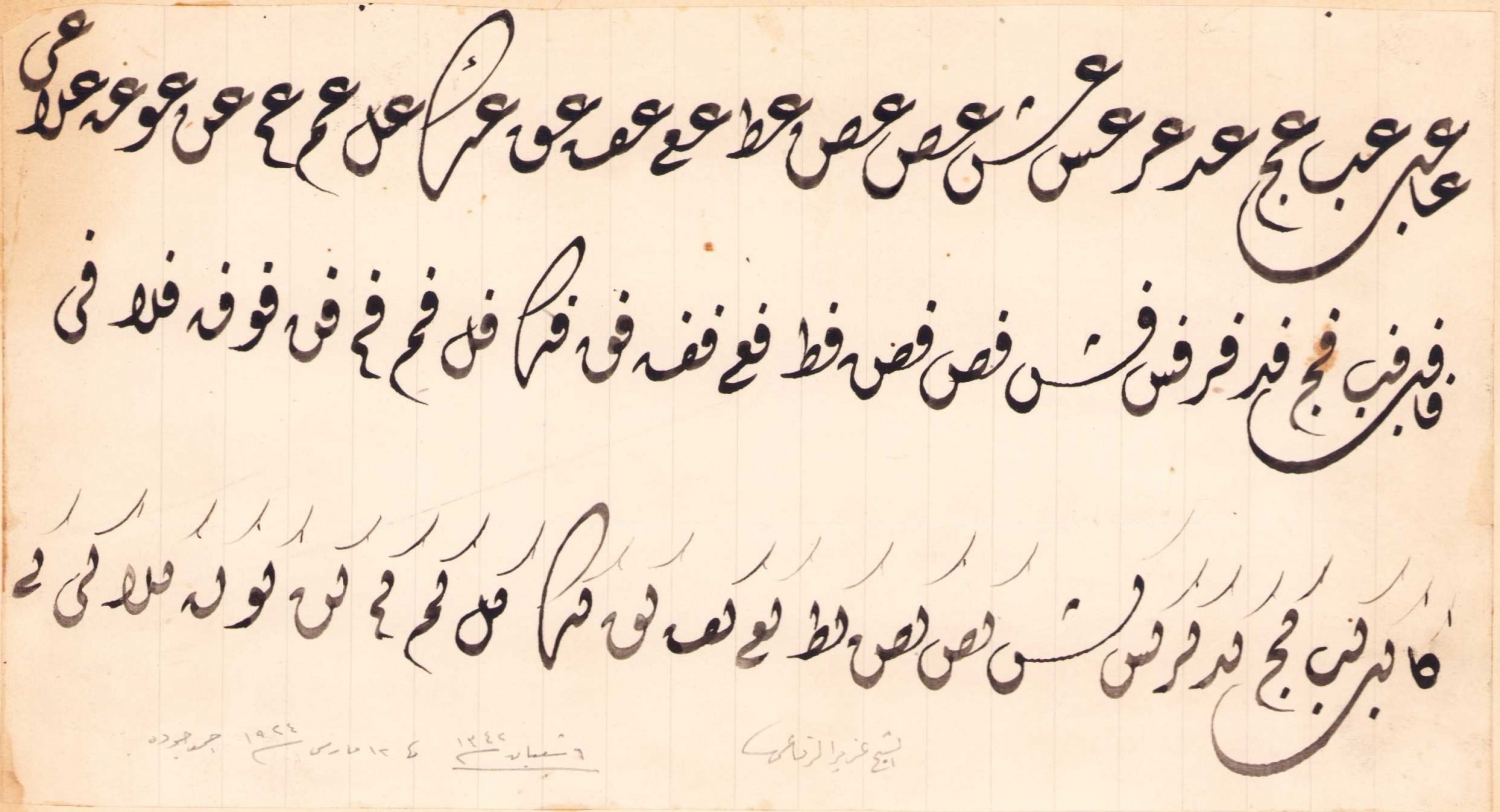 عا عب عب عج عد عر عس عش عص عص عط عع عف عق عكا عل عم عم عن عو عه علا عى
فا فب فب فج فد فر فس فش فص فص فط فع فف فق فكا فل فم فم فن فو فه فلا فى
كا كب كب كج كد كر كس كش كص كص كط كع كف كق ككا كل كم كم كن كو كه كلا كى كے
الشيخ عزيز الرفاعى ٦ شعبان ١٣٤٢ ١٢ مارس ١٩٢٤ جوده